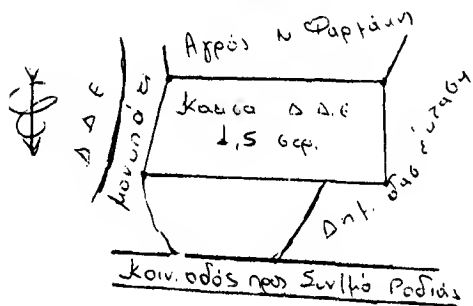 Αγρός Ν Φαρμάκη
Δ Δ Ε
μονοπάτι
Καεισα Δ Δ Ε
1,5 στρ.
Δημ. δασ. έκταση
Κοιν. οδός προς Συν/μό Ροδιάς